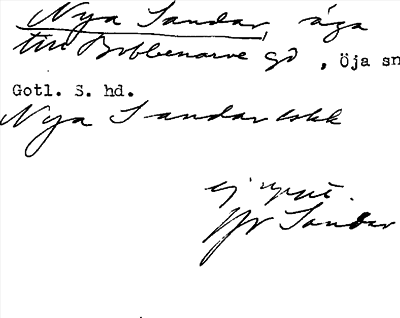 Nya Sandar, äga
till Bobbenarve gd, Öja sn
Gotl. S. hd.
Nya Sandar
ej uppt.
Jfr Sandar